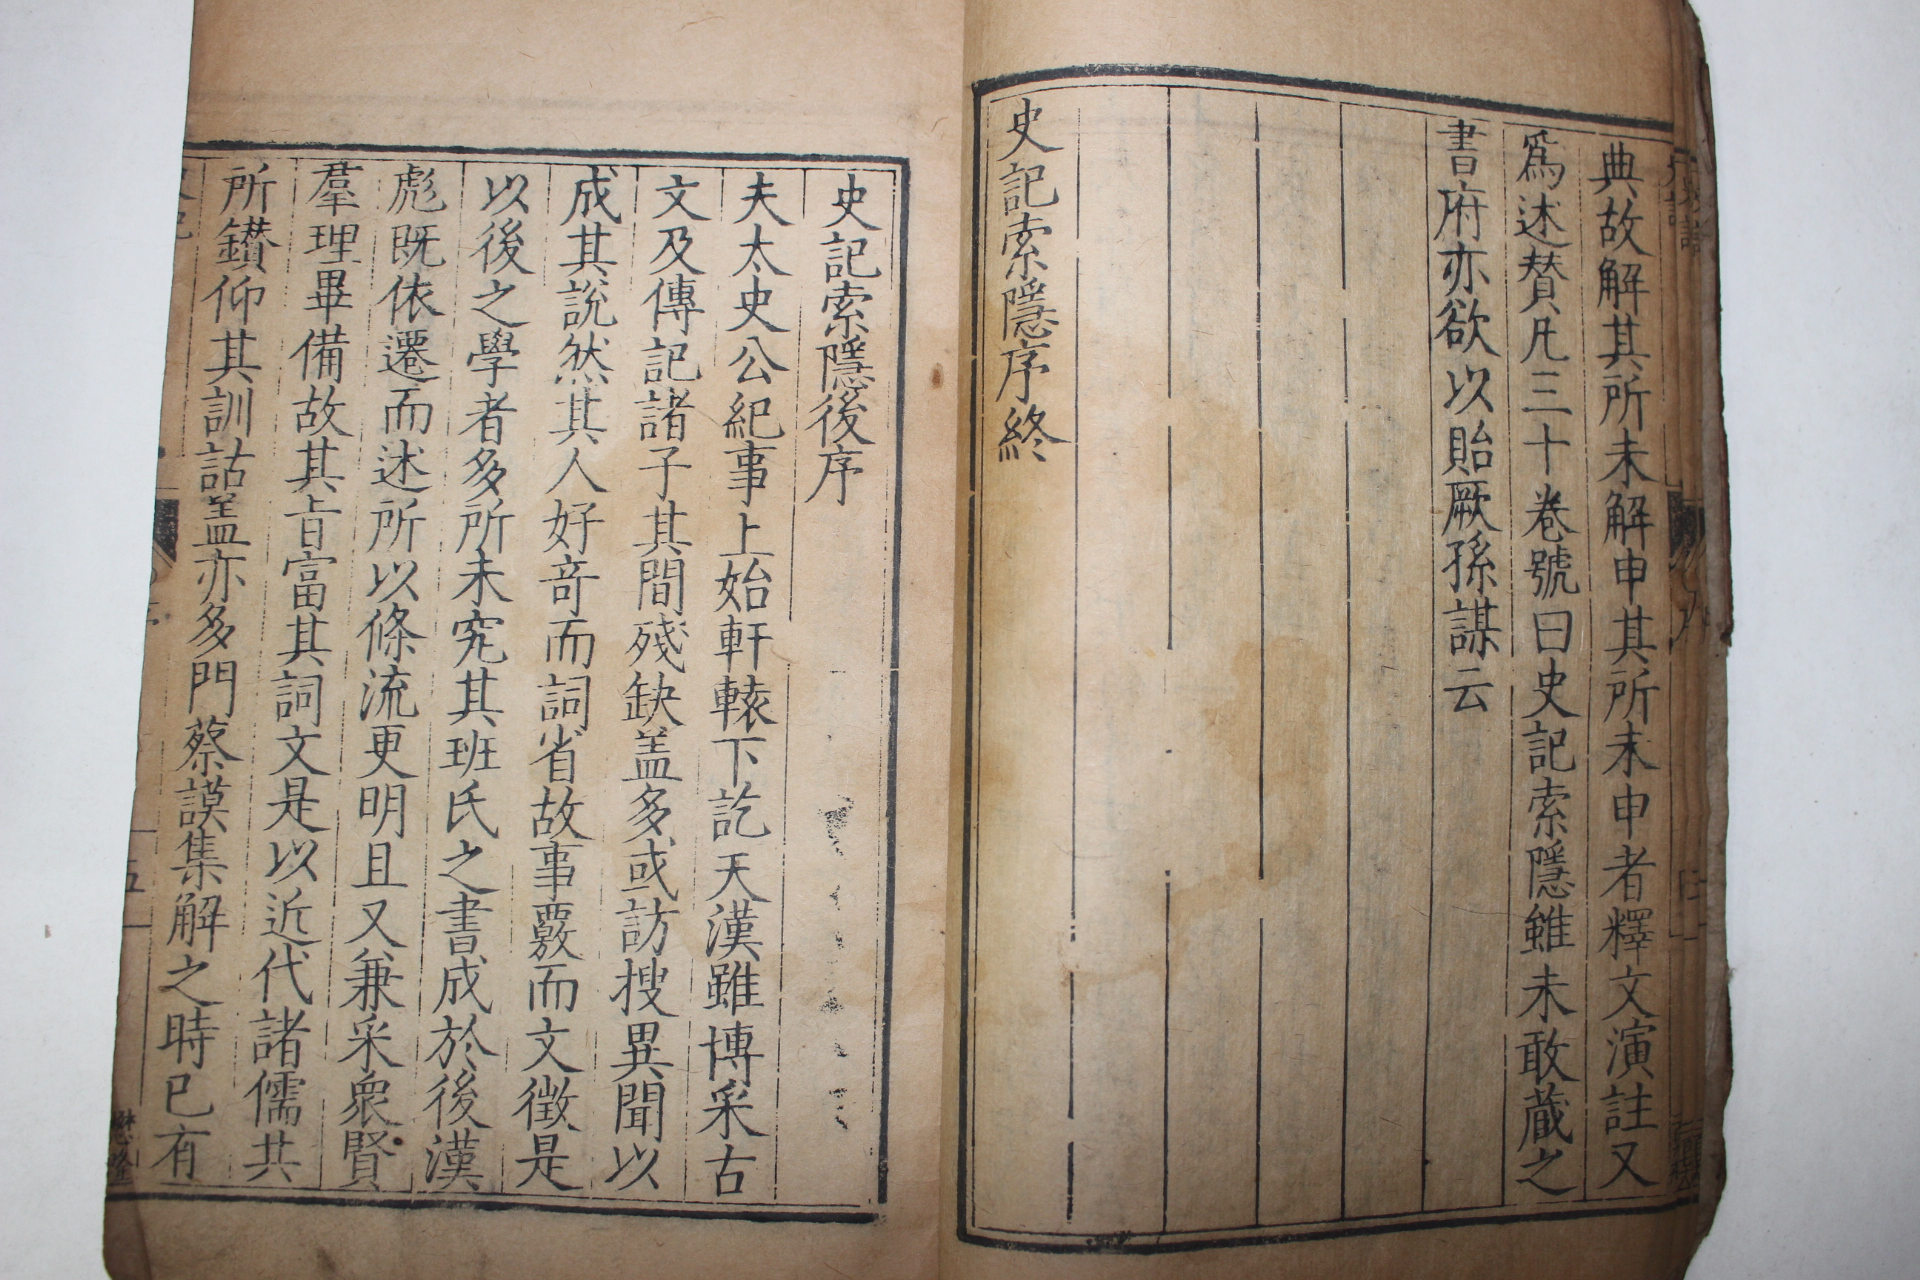 典故解其所未解申其所未申者釋文演註又
爲述贊凡三十卷號曰史記索隱雖未敢蔵之
書府亦欲以貽厥孫謀云
史記索隱序終
史記索隱後序
夫太史公紀事上始軒轅下訖天漢雖博采古
文及傳記諸子其間殘缺盖多或訪搜異聞以
成其說然其人好竒而詞省故事覈而文徵是
以後之學者多所未究其班氏之書成於後漢
彪既依遷而述所以條流更明且又兼采衆賢
羣理畢備故其旨富其詞文是以近代諸儒其
所鑚仰其訓詁盖亦多門蔡謨集解之時已有